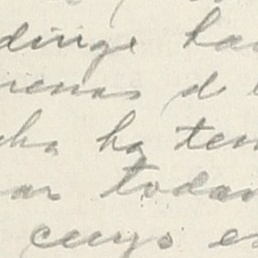 dirige ha
renas d
cha ha ten
ar todas
cuyo es